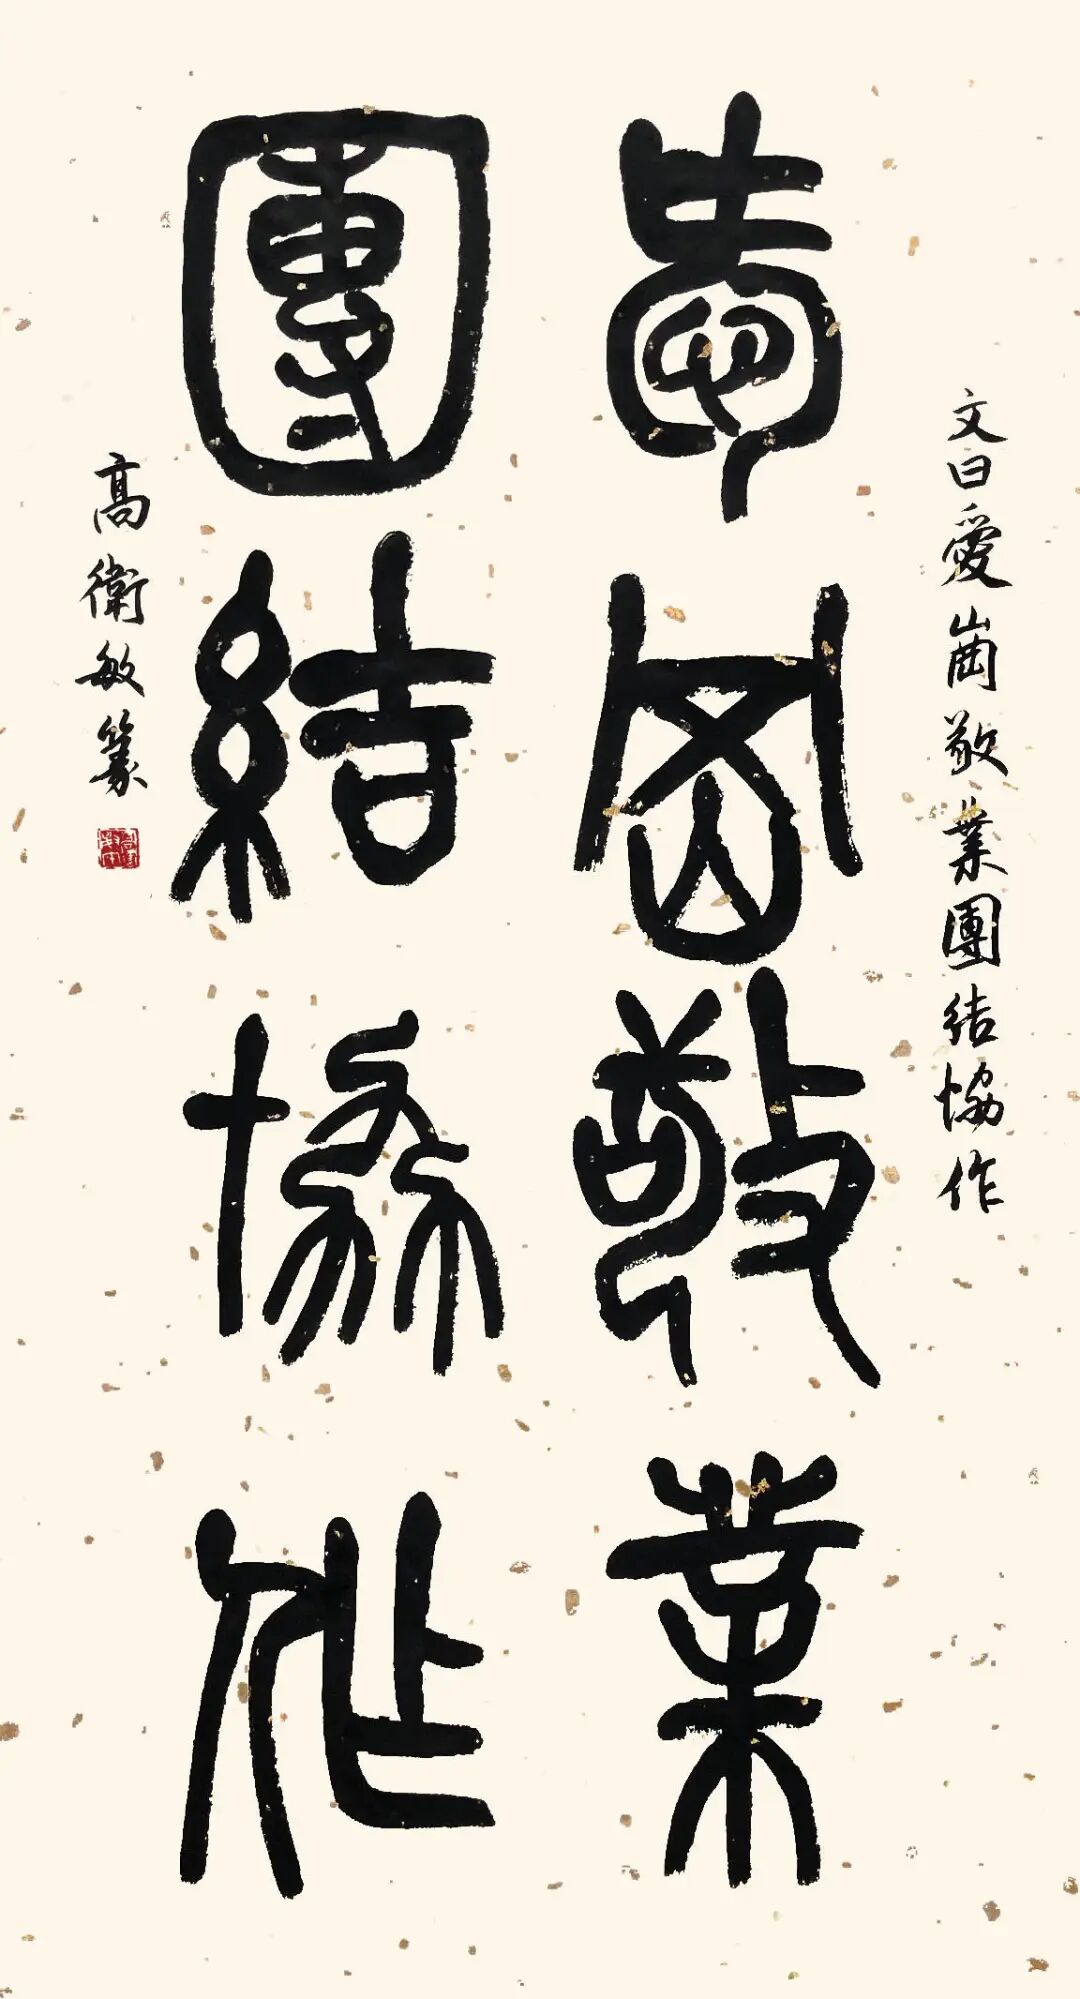 文曰愛崗敬業團結協作
愛岡敬業
團結協作
高衛敏篆